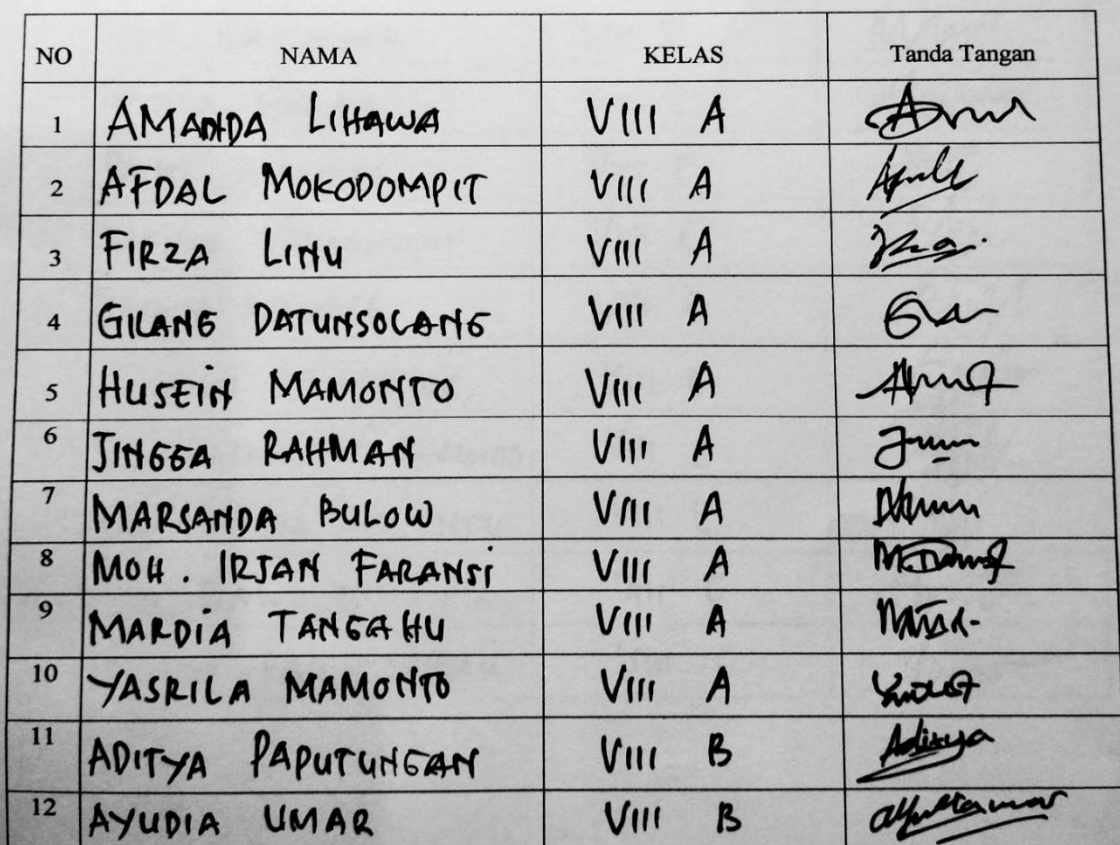 NO NAMA KELAS Tanda Tangan
1 AMANDA LIHAWA VIII A
2 AFDAL MOKODOMPIT VIII A
3 FIRZA LIHU VIII A
4 GILANG DATUNSOLANG VIII A
5 HUSEIN MAMONTO VIII A
6 JINGGA RAHMAN VIII A
7 MARSANDA BULOW VIII A
8 MOH. IRJAN FARANSI VIII A
9 MARDIA TANGAHU VIII A
10 YASRILA MAMONTO VIII A
11 ADITYA PAPUTUNGAN VIII B Aditya
12 AYUDIA UMAR VIII B